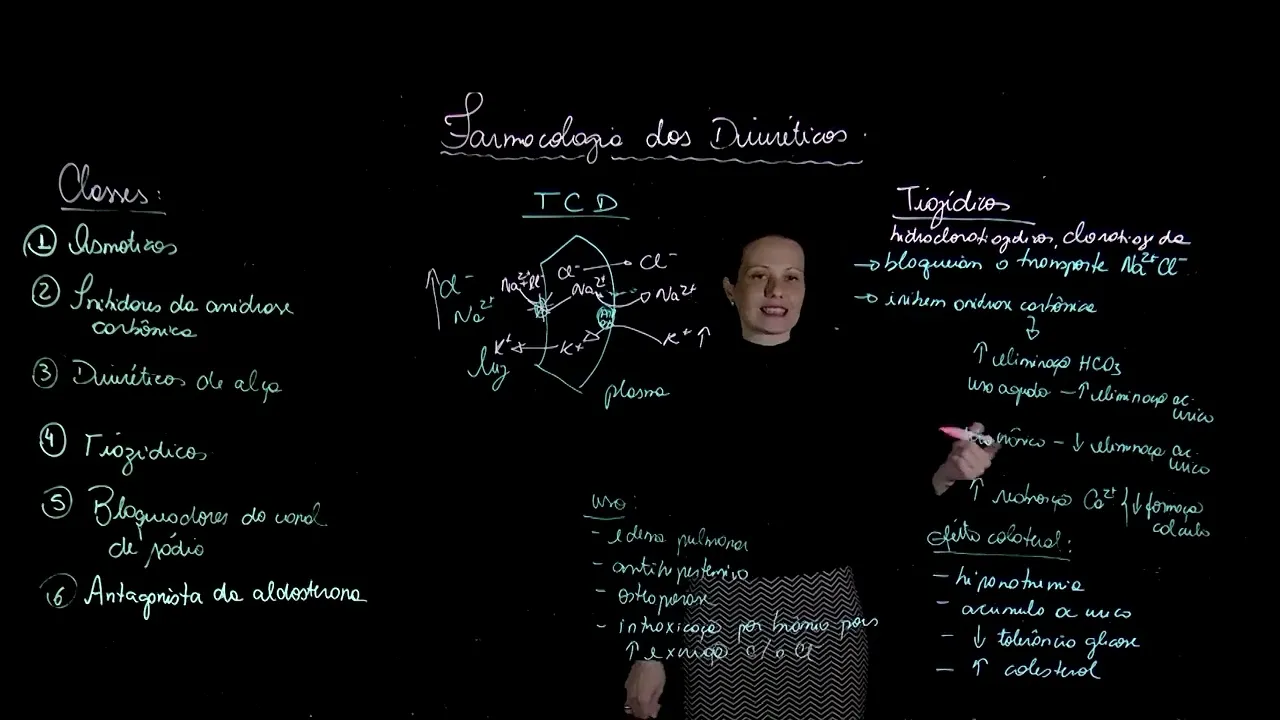 Farmocologia dos Diuréticos.
Classes:
① Osmoticos
② Initidores da anidrase
carbônica
③ Diuréticos de alça
④ Tiozídicos
⑤ Bloqueadores do canal
de sódio
⑥ Antagonista da aldosterona
TCD
↑ Cl⁻
Na²⁺
Cl⁻ → Cl⁻
Na²⁺ → Na²⁺
K⁺ ← K⁺ ← K⁺ ↑
luz
plasma
uso:
- edema pulmonar
- antihipertensivo
- osteoporose
- intoxicaçõ por bromo pois
↑ excreção c/o Cl⁻
Tiozídicos
hidroclorotiozidicos, clorotiozida
→ bloqueiam o transporte Na²⁺Cl⁻
→ inibem anidrase carbônica
↑ eliminaçõ HCO₃
uso agudo - ↑ eliminaçõ ac.
urico
crônico - ↓ eliminaçõ ac.
urico
↑ reabsorçõ Ca²⁺ { ↓ formaçõ
calculo
efeito colateral:
- hiponatremia
- acumulo ac urico
- ↓ tolerância glicose
- ↑ colesterol